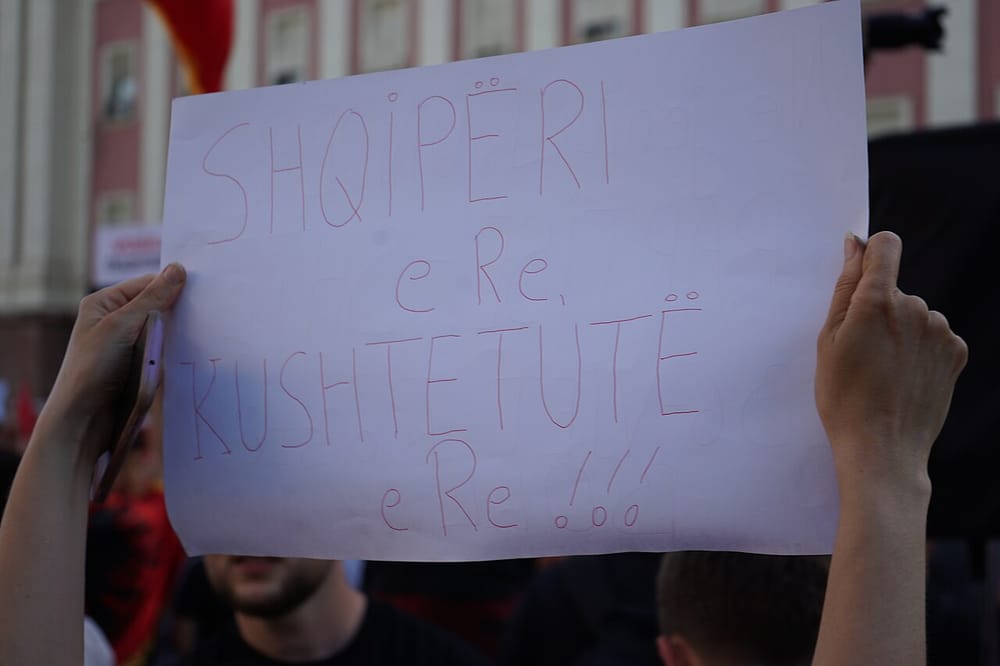 SHQIPËRI
e Re,
KUSHTETUTË
e Re !!!